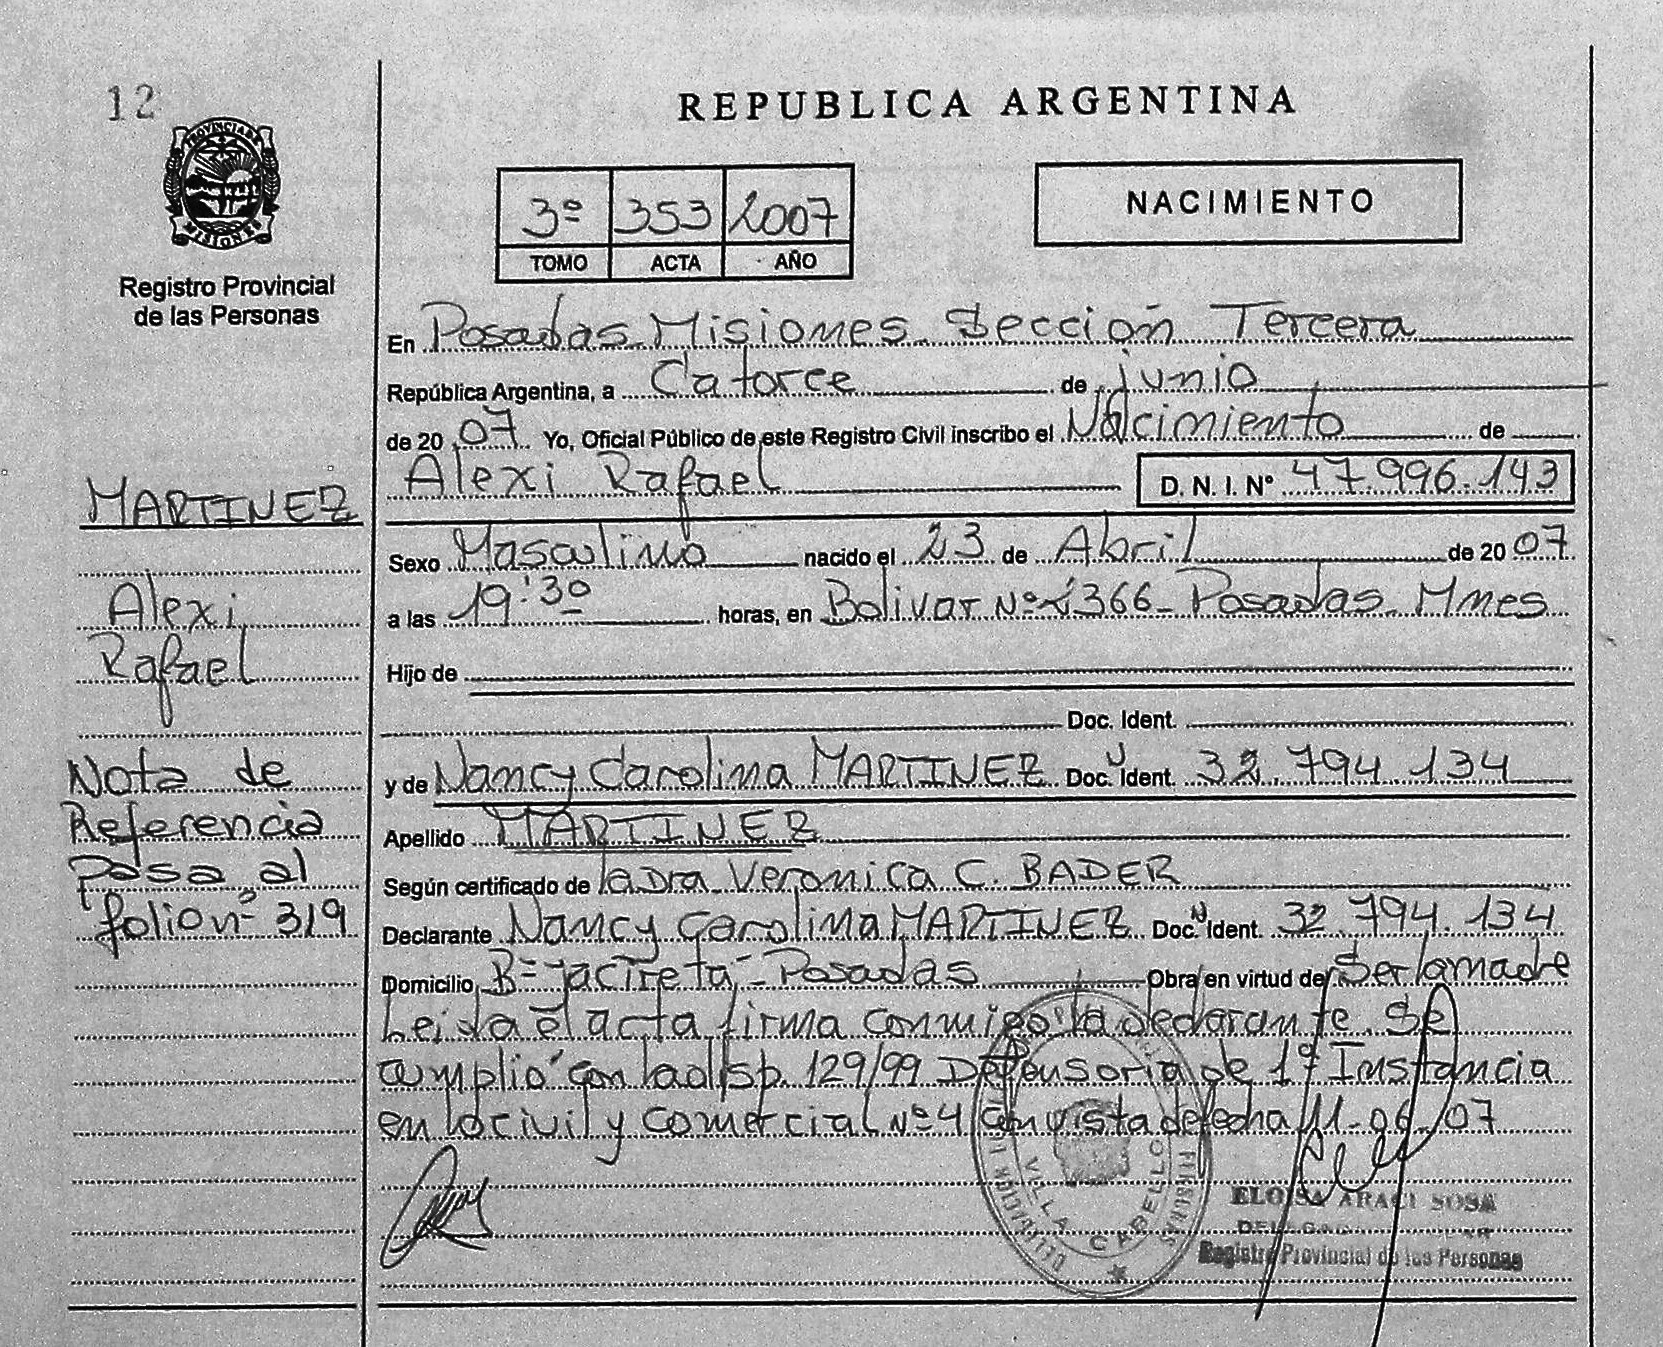 12
REPUBLICA ARGENTINA
PROVINCIA DE
MISIONES
Registro Provincial
de las Personas
3º 353 2007
TOMO ACTA AÑO
NACIMIENTO
En Posadas Misiones Sección Tercera
República Argentina, a Catorce de junio
de 2007 Yo, Oficial Público de este Registro Civil inscribo el Nacimiento de
Alexi Rafael D. N. I. Nº 47.996.143
MARTINEZ
Alexi
Rafael
Sexo Masculino nacido el 23 de Abril de 2007
a las 19:30 horas, en Bolivar Nº 2366 - Posadas Mnes
Hijo de
Doc. Ident.
y de Nancy Carolina MARTINEZ Doc. Ident. 32.794.134
Apellido MARTINEZ
Según certificado de la Dra Veronica C. BADER
Declarante Nancy Carolina MARTINEZ Doc. Ident. 32.794.134
Domicilio Bº yacireta - Posadas Obra en virtud de Ser la madre
Leida el acta firma conmigo la declarante. Se
cumplió con la disp. 129/99 Defensoria de 1º Instancia
en lo civil y comercial Nº 4 con vista de fecha 11-06-07
Nota de
Referencia
Pasa al
folio nº 319
VILLA CABELLO
ELOISA ARACI SOSA
Registro Provincial de las Personas